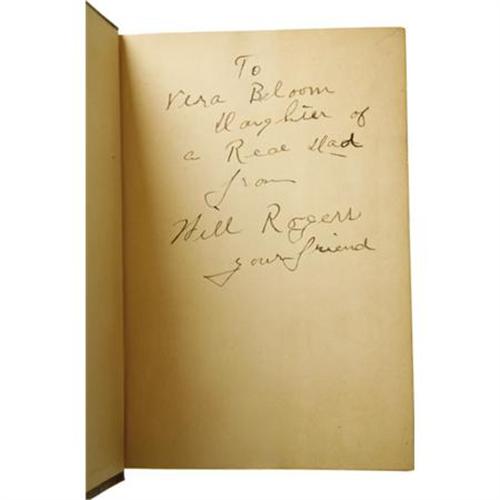 To
Vera Bloom
Daughter of
a Real Dad
from
Will Rogers
your friend